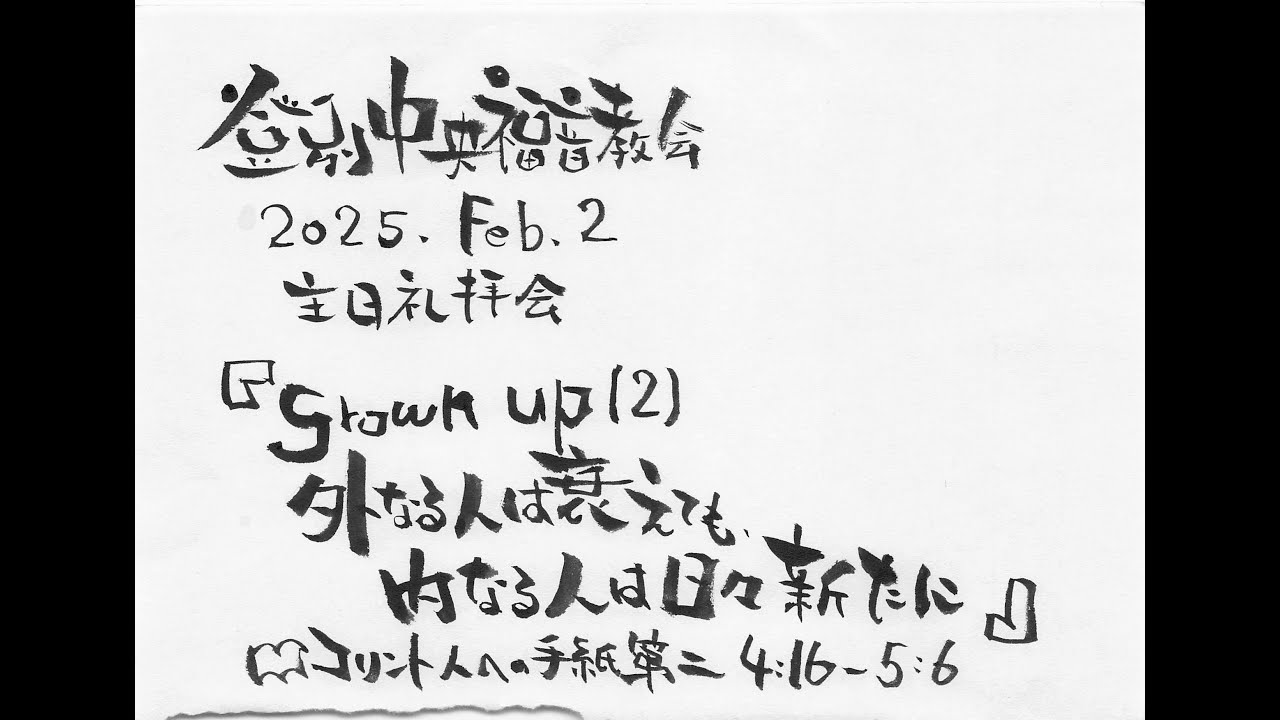 登別中央福音教会
2025. Feb. 2
主日礼拝会
『Grown up (2)
外なる人は衰えても、
内なる人は日々新たに』
コリント人への手紙第二 4:16-5:6